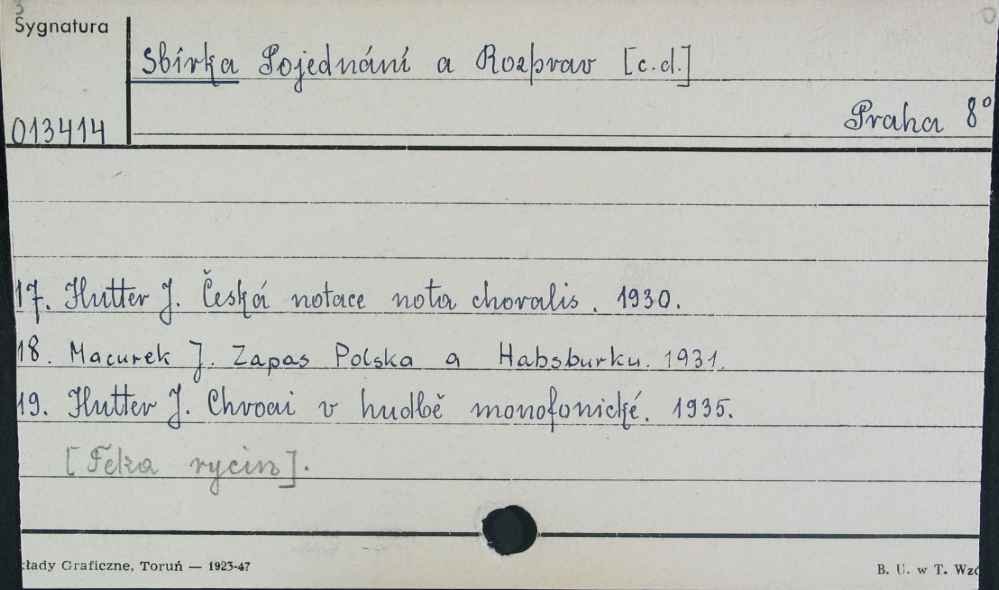 Sygnatura
Sbírka Pojednání a Rozprav [c.d.]
Praha 8°
013414
17. Hutter J. Česká notace nota choralis. 1930.
18. Macurek J. Zapas Polska a Habsburku. 1931.
19. Hutter J. Chvoai v hudbě monofonické. 1935.
[Teka rycin].
kłady Graficzne, Toruń — 1923-47
B. U. w T. Wzó